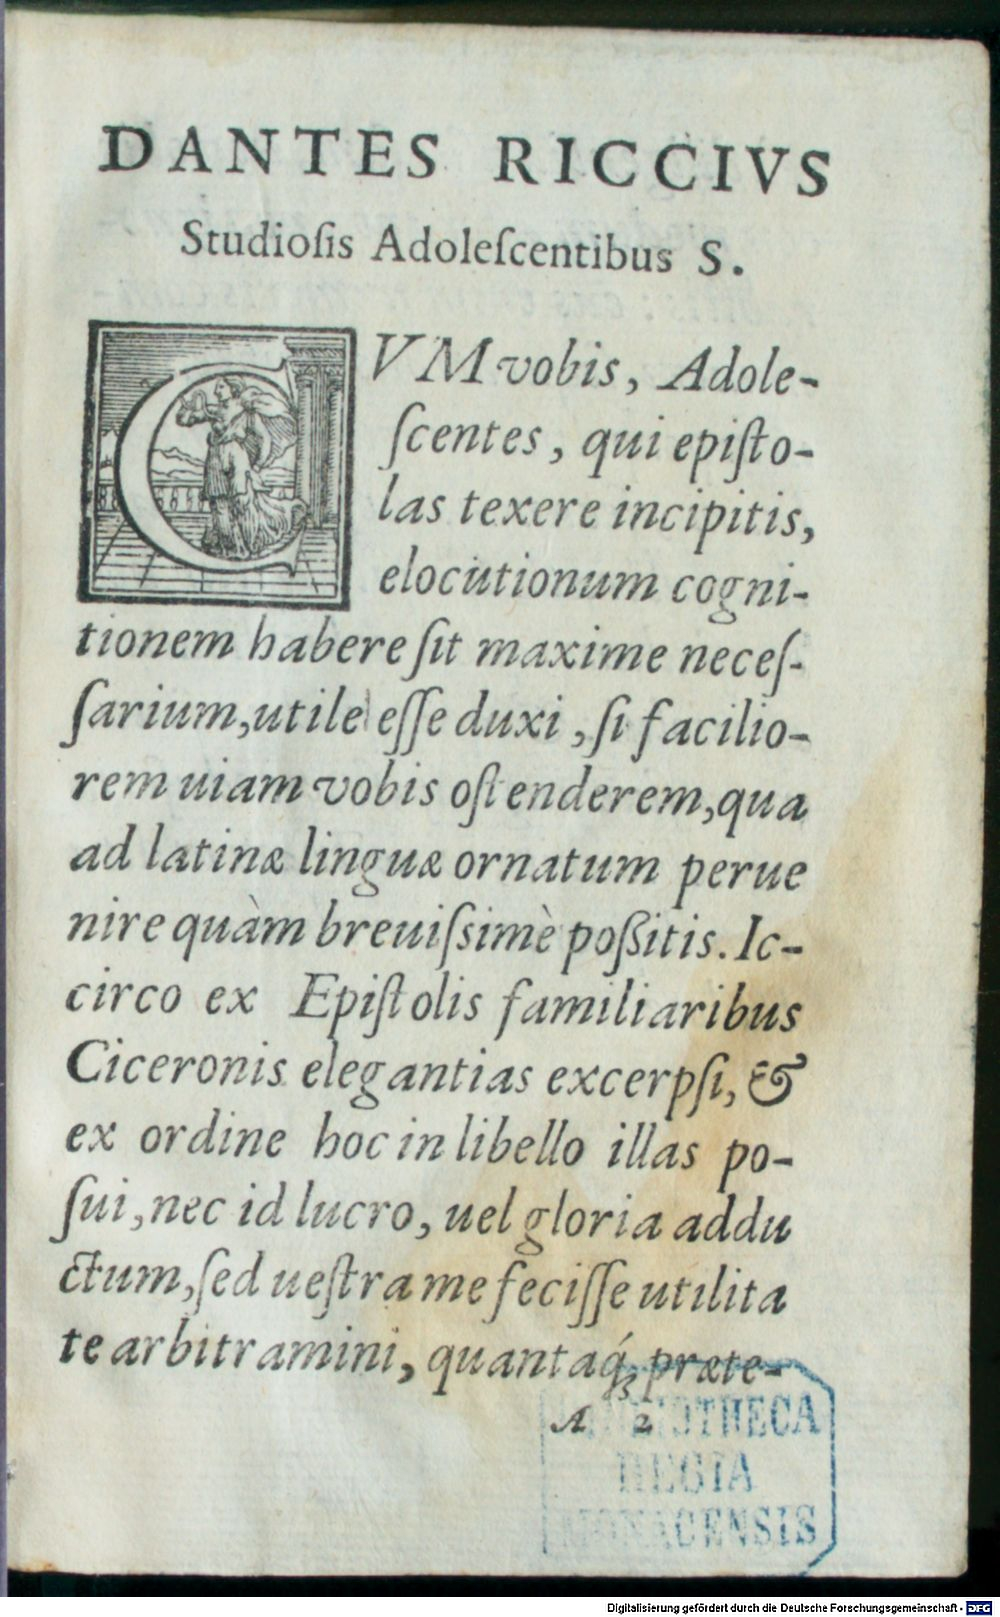 DANTES RICCIVS
Studioſis Adoleſcentibus S.
CVM vobis, Adole-
ſcentes, qui epiſto-
las texere incipitis,
elocutionum cogni-
tionem habere ſit maxime neceſ-
ſarium, utile eſſe duxi, ſi facilio-
rem uiam vobis oſtenderem, qua
ad latinæ linguæ ornatum perue
nire quàm breuiſsimè poßitis. Ic-
circo ex Epiſtolis familiaribus
Ciceronis elegantias excerpſi, &
ex ordine hoc in libello illas po-
ſui, nec id lucro, uel gloria addu
ctum, ſed ueſtra me feciſſe utilita
te arbitramini, quantaq́; præte-
A 2
BIBLIOTHECA
REGIA
MONACENSIS
Digitalisierung gefördert durch die Deutsche Forschungsgemeinschaft - DFG